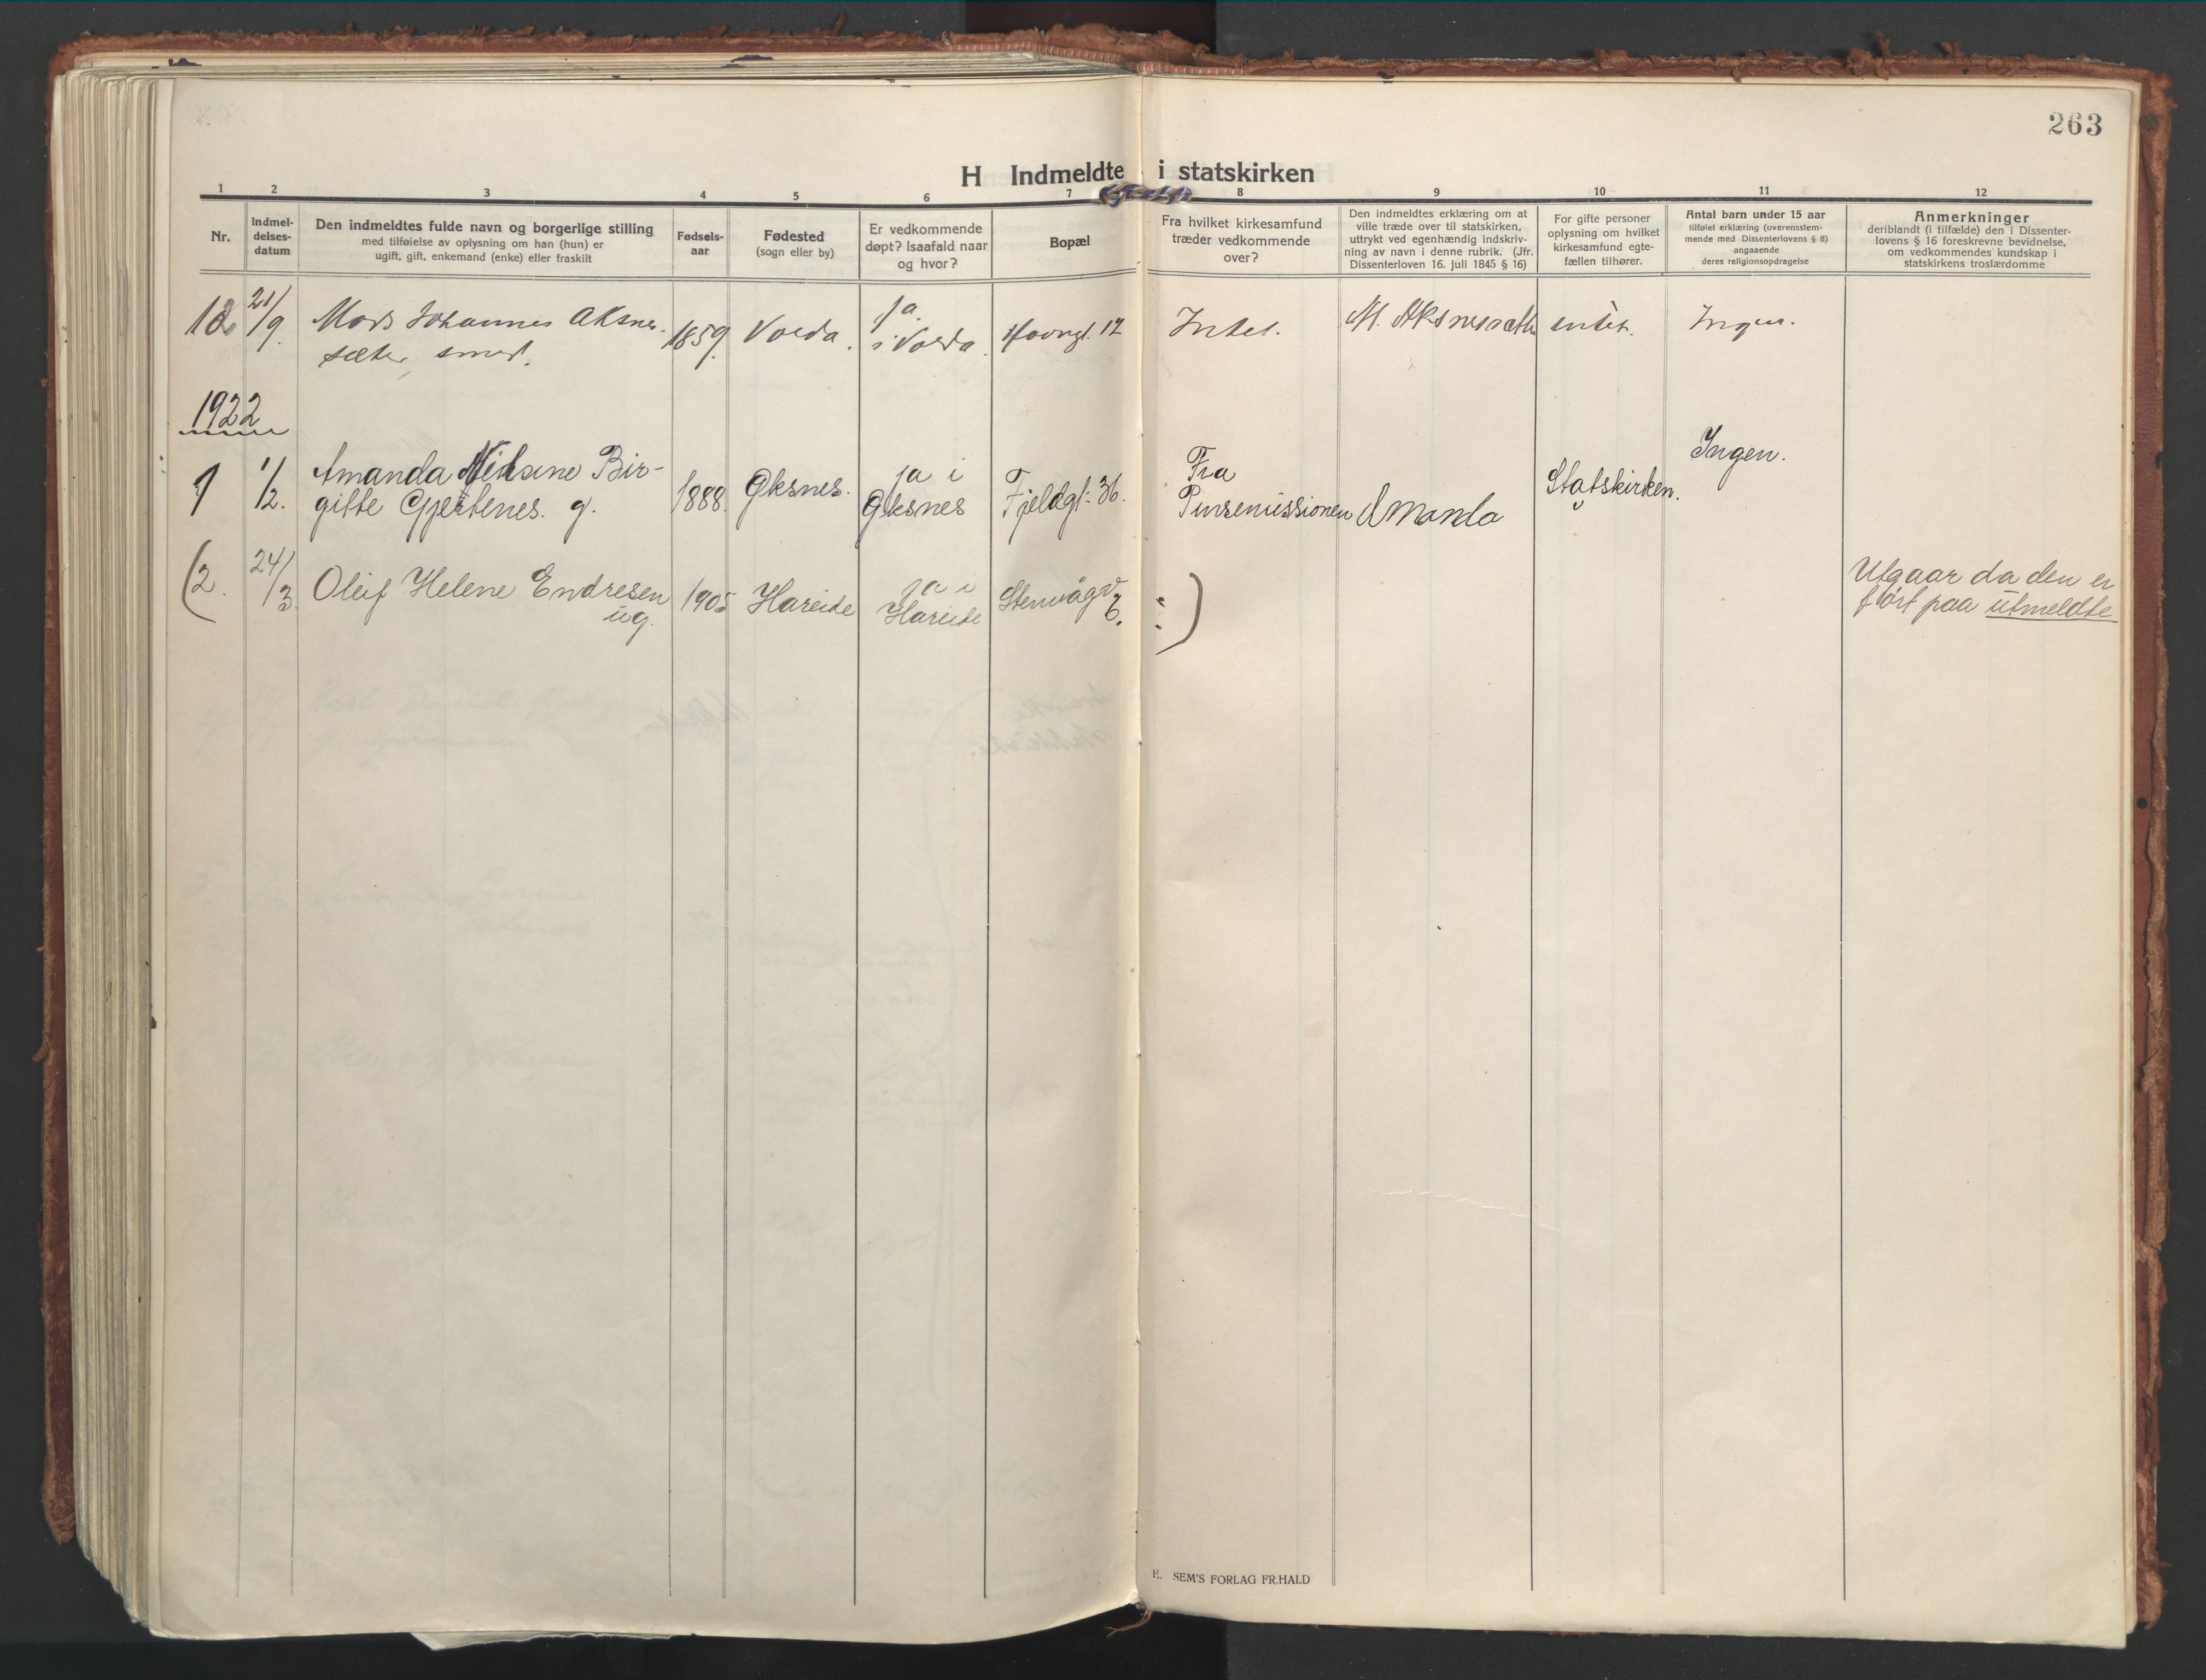 263
H Indmeldte i statskirken
1 2 3 4 5 6 7 8 9 10 11 12
Nr.
Indmel-
delses-
datum
Den indmeldtes fulde navn og borgerlige stilling
med tilføielse av oplysning om han (hun) er
ugift, gift, enkemand (enke) eller fraskilt
Fødsels-
aar
Fødested
(sogn eller by)
Er vedkommende
døpt? Isaafald naar
og hvor?
Bopæl
Fra hvilket kirkesamfund
træder vedkommende
over?
Den indmeldtes erklæring om at
ville træde over til statskirken,
uttrykt ved egenhændig indskriv-
ning av navn i denne rubrik. (Jfr.
Dissenterloven 16. juli 1845 § 16)
For gifte personer
oplysning om hvilket
kirkesamfund egte-
fællen tilhører.
Antal barn under 15 aar
tilføiet erklæring (overensstem-
mende med Dissenterlovens § 8)
angaaende
deres religionsopdragelse
Anmerkninger
deriblandt (i tilfælde) den i Dissenter-
lovens § 16 foreskrevne bevidnelse,
om vedkommendes kundskap i
statskirkens troslærdomme
21/9.
Mads Johannes Aksnes-
sæter, smed.
1859.
Volda.
Ja.
i Volda.
Havngt. 12
Intet.
intet.
Ingen.
1922
1
1/2.
Amanda Bir-
gitte Gjertenes. g.
1888.
Øksnes.
ja i
Øksnes
Fjeldgt: 36.
Fra
Pinsemissionen
Amanda
Statskirken.
Ingen.
(2.
24/3
Oleif Helene Endresen
ug.
1905
Hareide
ja i
Hareide
Stenvågv
)
Utgaar da den er
ført paa utmeldte
E. SEM'S FORLAG FR.HALD